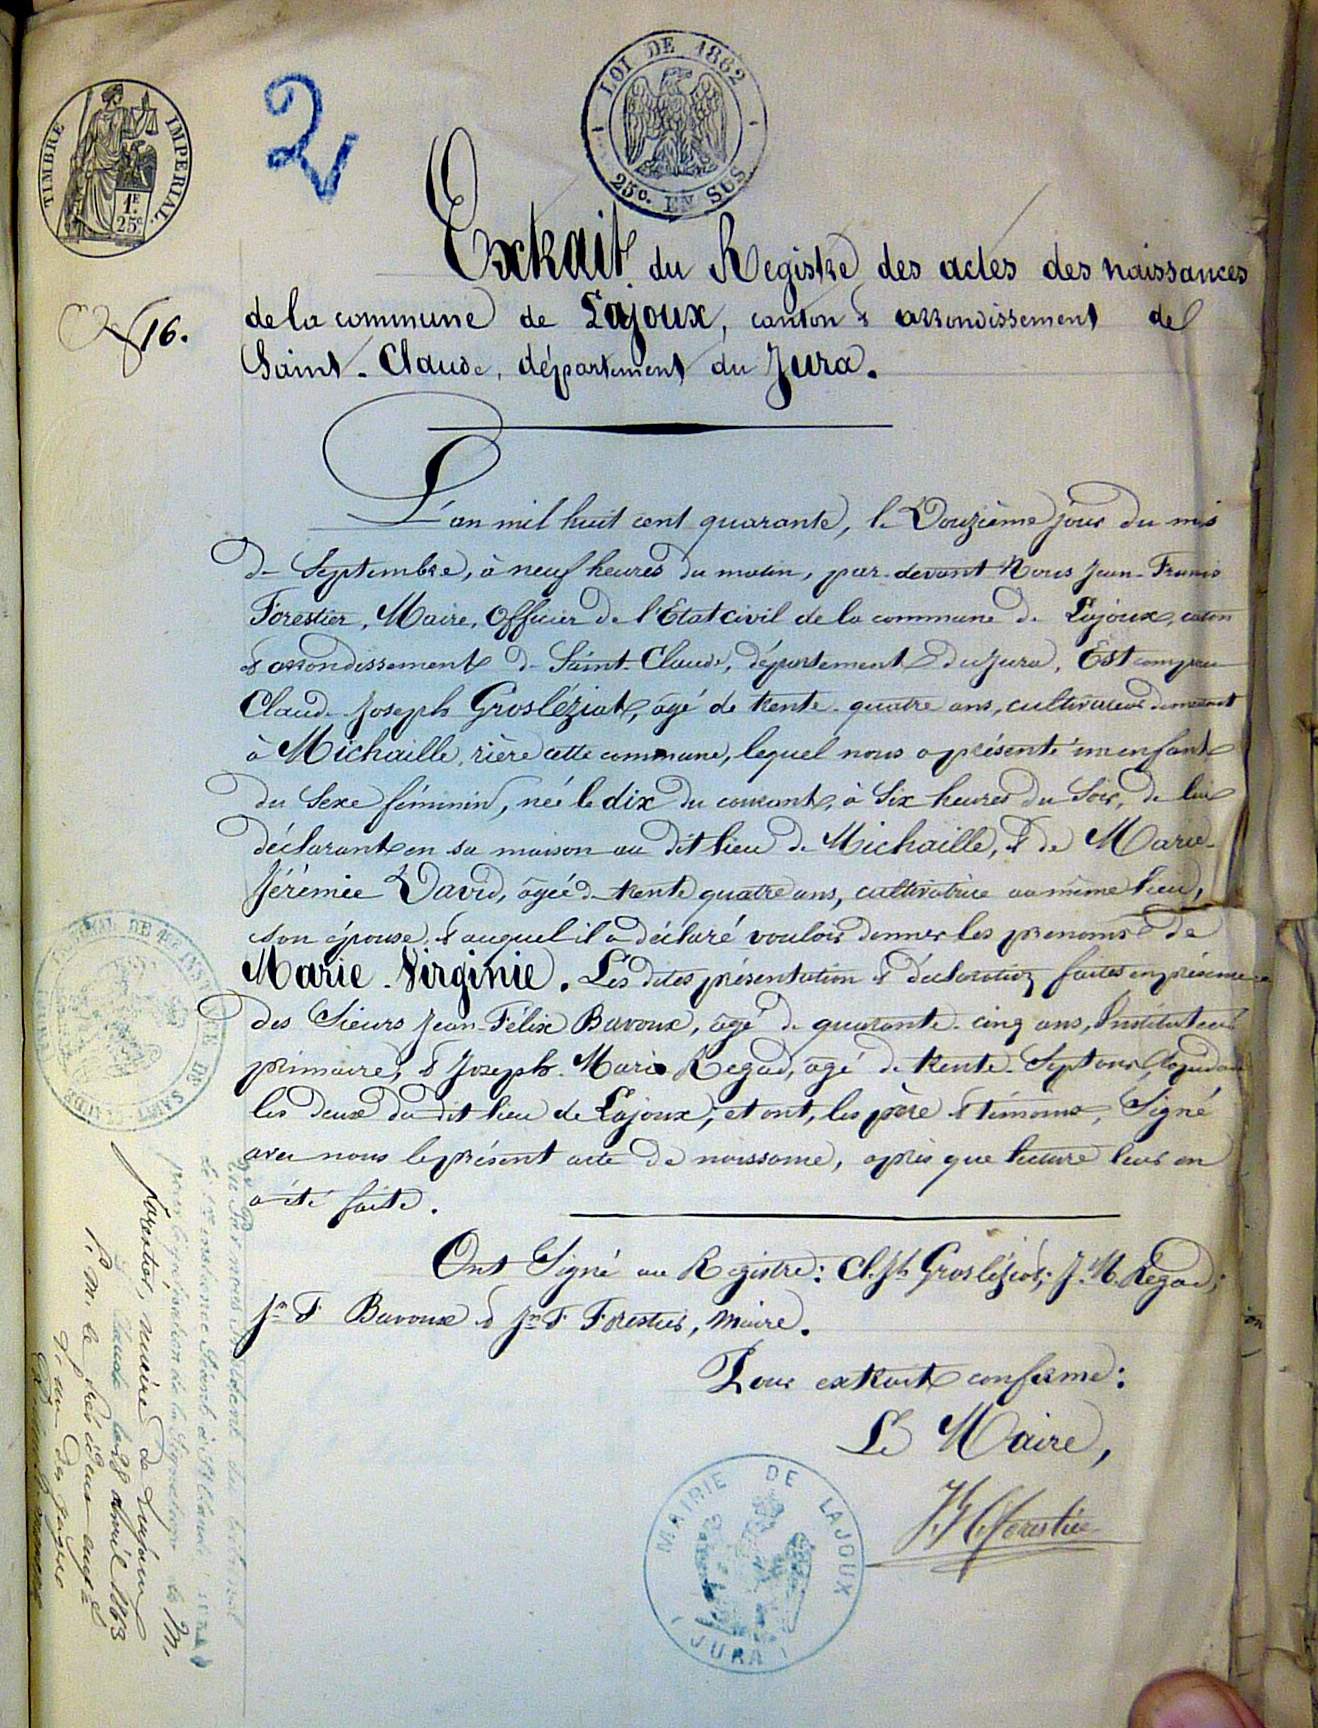 LOI DE 1862
25c. EN SUS
TIMBRE IMPERIAL
1F.
25c.
2
Extrait du Registre des actes des naissances
N° 16.
de la commune de Lajoux, canton & arrondissement de
Saint-Claude, département du Jura.
L'an mil huit cent quarante, le Douzième jour du mois
de Septembre, à neuf heures du matin, par-devant Nous Jean-François
Forestier, Maire, Officier de l'Etat civil de la commune de Lajoux, canton
& arrondissement de Saint-Claude, département du Jura, Est comparu
Claude-Joseph Grosléziat, âgé de trente-quatre ans, cultivateur demeurant
à Michaille, rière cette commune, lequel nous a présenté un enfant
du Sexe féminin, née le dix du courant, à Six heures du Soir, de lui
déclarant en sa maison au dit lieu de Michaille, & de Marie-
Jérémie David, âgée de trente quatre ans, cultivatrice au même lieu,
son épouse, & auquel il a déclaré vouloir donner les prénoms de
Marie-Virginie. Les dites présentation & déclaration faites en présence
des Sieurs Jean-Félix Bavoux, âgé de quarante-cinq ans, Instituteur
primaire, & Joseph-Marie Regad, âgé de trente-Sept ans,
les deux du dit lieu de Lajoux, et ont, les père & témoins, Signé
avec nous le présent acte de naissance, après que lecture leur en
a été faite.
Ont Signé au Registre: Cl. Jh Grosléziat; J. M. Régad;
Jn F Bavoux & Jn F Forestier, Maire.
Pour extrait conforme:
Le Maire,
JF Forestier
MAIRIE DE LAJOUX
(JURA)
TRIBUNAL DE 1ère INSTANCE DE SAINT CLAUDE
(JURA)
Vu Par nous Président du tribunal
de 1re instance Séant à St Claude
pour légalisation de la Signature de M.
forestier, maire de Lajoux
St Claude le 28 avril 1863
P. M. le Président